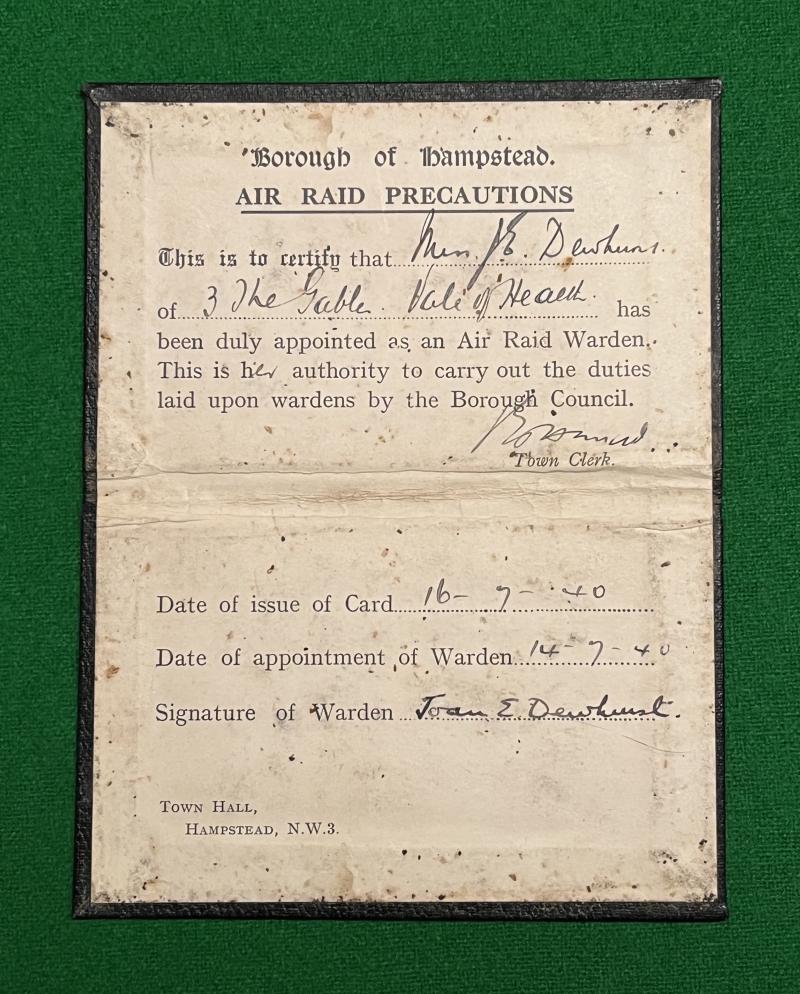 Borough of Hampstead.
AIR RAID PRECAUTIONS
This is to certify that Miss J E. Dewhurst.
of 3 The Gables. Vale of Health. has
been duly appointed as an Air Raid Warden.
This is her authority to carry out the duties
laid upon wardens by the Borough Council.
Town Clerk.
Date of issue of Card 16 - 7 - 40
Date of appointment of Warden 14 - 7 - 40
Signature of Warden Joan E Dewhurst.
TOWN HALL,
HAMPSTEAD, N.W.3.